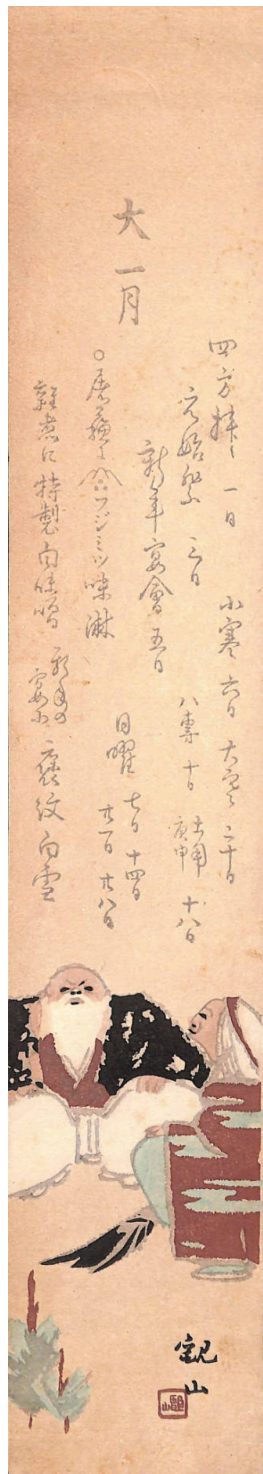 大 一月
四方拝 一日 小寒 六日 大寒 二十日
元始祭 三日 八専 十日 土用 庚申 十八日
新年宴會 五日
日曜 七日 十四日 廿一日 廿八日
○屠蘇に フジミツ味淋
雑煮に 特製白味噌 新年の宴に 褒紋白雪
観山